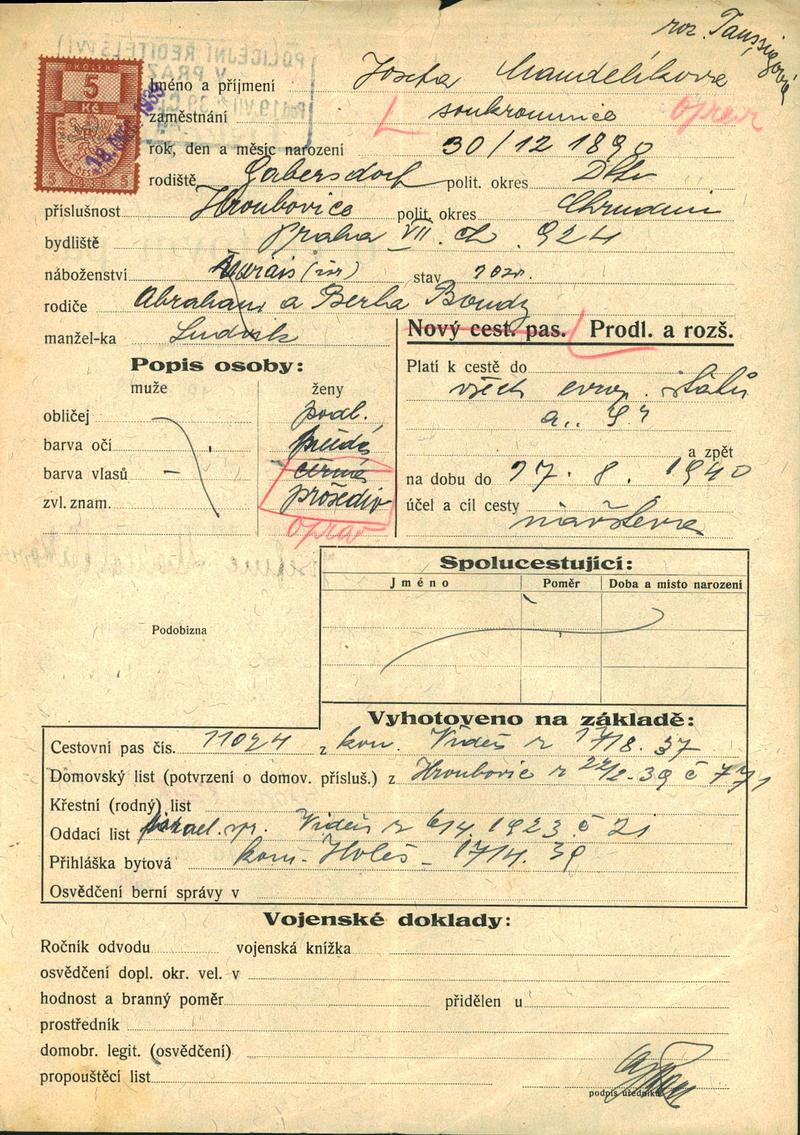 roz. Taussigová
5
Kč
jméno a příjmení Josefa Mandelíková
zaměstnání soukromnice oprav
rok, den a měsíc narození 30/12 1890
rodiště Gabersdorf polit. okres Dtto
příslušnost Hroubovice polit. okres Chrudim
bydliště Praha VII. 924
náboženství (isr) stav rozv.
rodiče Abraham a Berta Bondy
manžel-ka Ludvík
Nový cest. pas. Prodl. a rozš.
Popis osoby:
muže ženy
obličej podl.
barva očí
barva vlasů černé
zvl. znam. prošediv
oprav
Platí k cestě do
všech evrop. států
a zpět
na dobu do 17. 8. 1940
účel a cíl cesty
návštěva
Spolucestující:
Jméno Poměr Doba a místo narození
Podobizna
Vyhotoveno na základě:
Cestovní pas čís. 11024 z kon. Vídeň z 17/8. 37
Domovský list (potvrzení o domov. přísluš.) z Hroubovic z 22/2-39 č 771
Křestní (rodný) list
Oddací list israel. Vídeň z 1923 č 21
Přihláška bytová kom. Holeš - 17/4. 39
Osvědčení berní správy v
Vojenské doklady:
Ročník odvodu vojenská knížka
osvědčení dopl. okr. vel. v
hodnost a branný poměr přidělen u
prostředník
domobr. legit. (osvědčení)
propouštěcí list
podpis úředníka